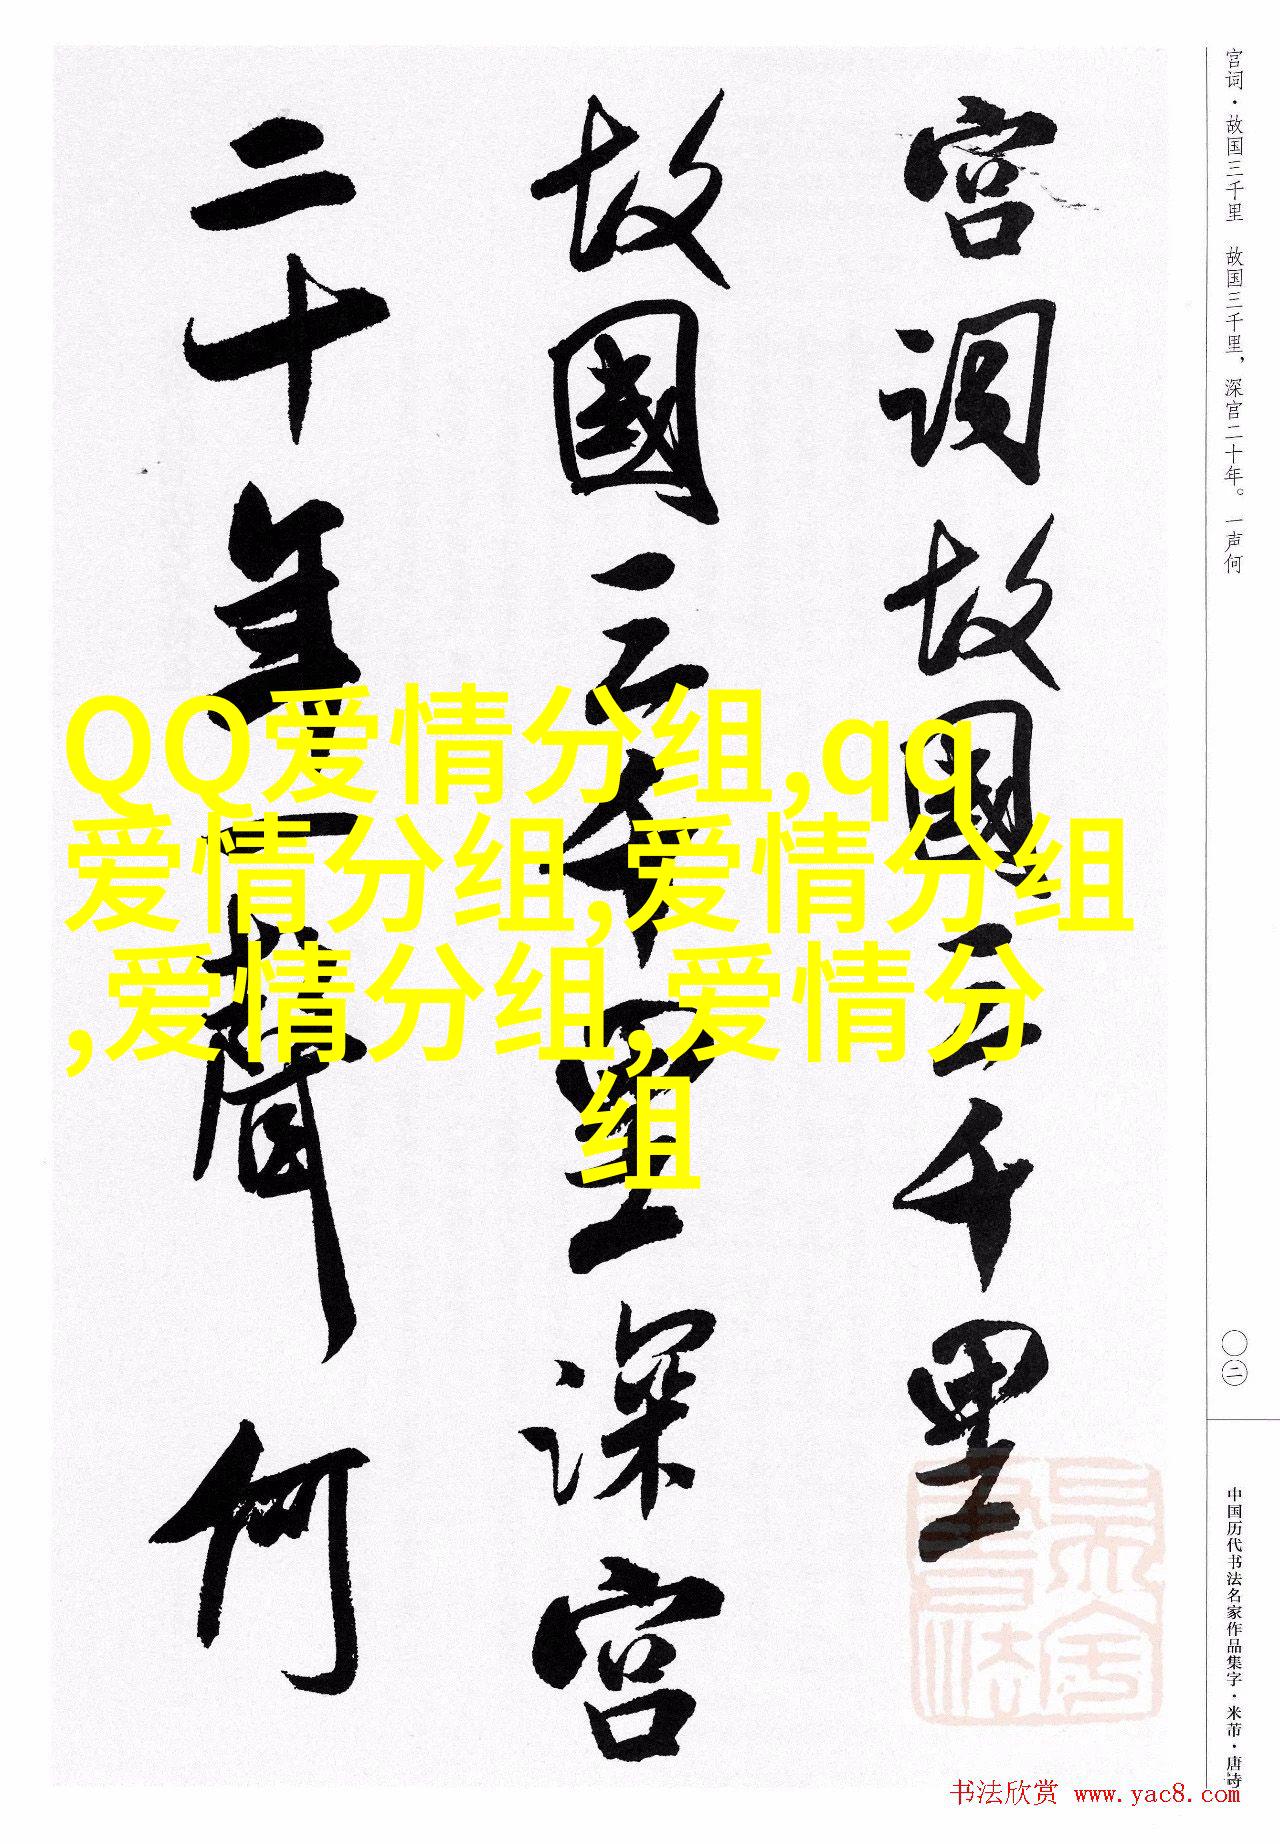 宫词·故国三千里 故国三千里，深宫二十年。一声何
宫词故國三千里
故國三千里深宫
二十年一聲何
QQ爱情分组,qq
爱情分组,爱情分组
,爱情分组,爱情分
组
〇二
中国历代书法名家作品集字·米芾·唐诗
书法欣赏 www.yac8.com